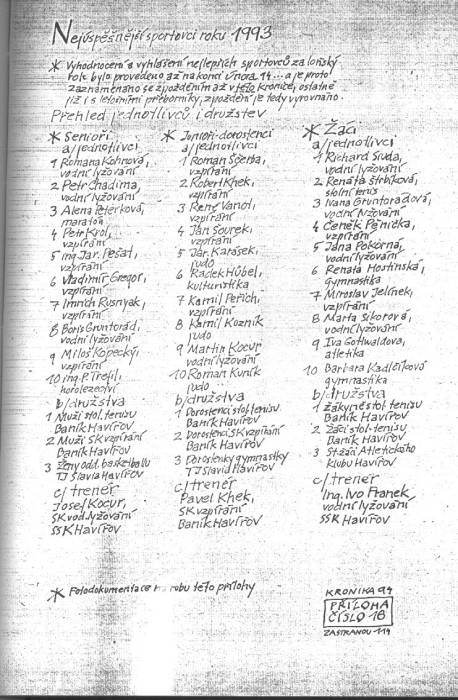 Nejúspěšnější sportovci roku 1993
* Vyhodnocení a vyhlášení nejlepších sportovců za loňský
rok bylo provedeno až na konci února 94... a je proto
zaznamenáno se zpožděním až v této kronice, ostatně
již i s letošními přeborníky, zpoždění je tedy vyrovnáno.
Přehled jednotlivců i družstev
* Senioři
a/jednotlivci
1 Romana Kohnová,
vodní lyžování
2 Petr Chadima,
vodní lyžování
3 Alena Peterková,
maraton
4 Petr Krol,
vzpírání
5 ing. Jar. Pešat,
vzpírání
6 Vladimír Gregor,
vzpírání
7 Imrich Rusnyak,
vzpírání
8 Boris Gruntorád,
vodní lyžování
9 Miloš Kopecký,
vzpírání
10 ing. P. Trefil,
horolezectví
b/družstva
1 Muži stol. tenisu
Baník Havířov
2 Muži SK vzpírání
Baník Havířov
3 Ženy odd. basketbalu
TJ Slavia Havířov
c/trenér
Josef Kocur,
SK vod. lyžování
SSK Havířov
* Junioři-dorostenci
a/jednotlivci
1 Roman Ščerba,
vzpírání
2 Robert Khek,
vzpírání
3 René Vanot,
vzpírání
4 Jan Sourek,
vzpírání
5 Jar. Karásek,
judo
6 Radek Hübel,
kulturistika
7 Kamil Peřich,
vzpírání
8 Kamil Kozník
judo
9 Martin Kocur
vodní lyžování
10 Roman Kuník
judo
b/družstva
1 Dorostenci stol. tenisu
Baník Havířov
2 Dorostenci SK vzpírání
Baník Havířov
3 Dorostenky gymnastky
TJ Slavia Havířov
c/trenér
Pavel Khek,
SK vzpírání
Baník Havířov
* Žáci
a/jednotlivci
1 Richard Siuda,
vodní lyžování
2 Renáta Štrbíková,
stolní tenis
3 Ivana Gruntorádová,
vodní lyžování
4 Čeněk Pěnička,
vzpírání
5 Jana Pokorná,
vodní lyžování
6 Renata Hostinská,
gymnastika
7 Miroslav Jelínek,
vzpírání
8 Marta Sikorová,
vodní lyžování
9 Iva Gottwaldová,
atletika
10 Barbara Kadlčíková
gymnastika
b/družstva
1 Žákyně stol. tenisu
Baník Havířov
2 Žáci stol. tenisu
Baník Havířov
3 St. žáci Atletického
klubu Havířov
c/trenér
Ing. Ivo Franek,
vodní lyžování
SSK Havířov
* Fotodokumentace na rubu této přílohy
KRONIKA 94
PŘÍLOHA
ČÍSLO 18
ZA STRANOU 114